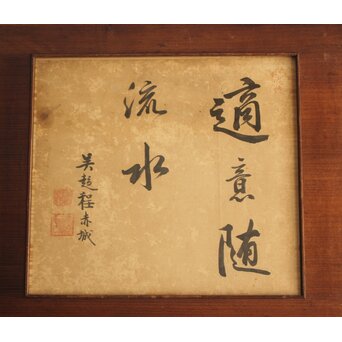 適意随
流水
吳趍程赤城